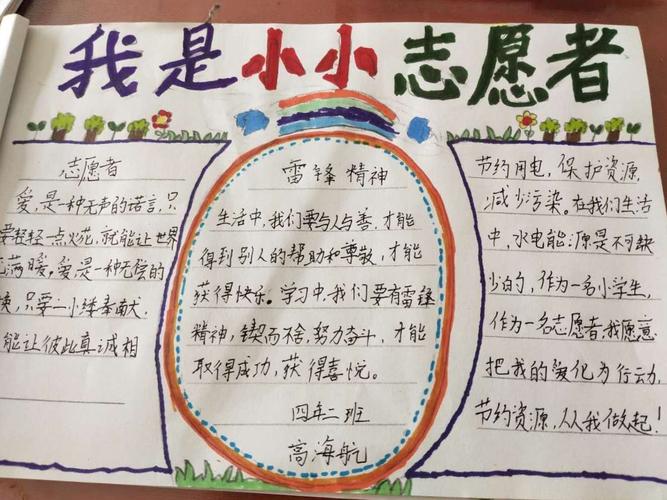 我是小小志愿者
志愿者
爱,是一种无声的诺言,只
要轻轻一点火花,就能让世界
充满暖。爱是一种无偿的
换,只要一小缕奉献,
能让彼此真诚相
雷锋精神
生活中,我们要与人与善,才能
得到别人的帮助和尊敬,才能
获得快乐。学习中,我们要有雷锋
精神,锲而不舍,努力奋斗,才能
取得成功,获得喜悦。
四年二班
高海航
节约用电,保护资源,
减少污染。在我们生活
中,水电能源是不可缺
少的,作为一名小学生,
作为一名志愿者,我愿意
把我的爱化为行动,
节约资源,从我做起!